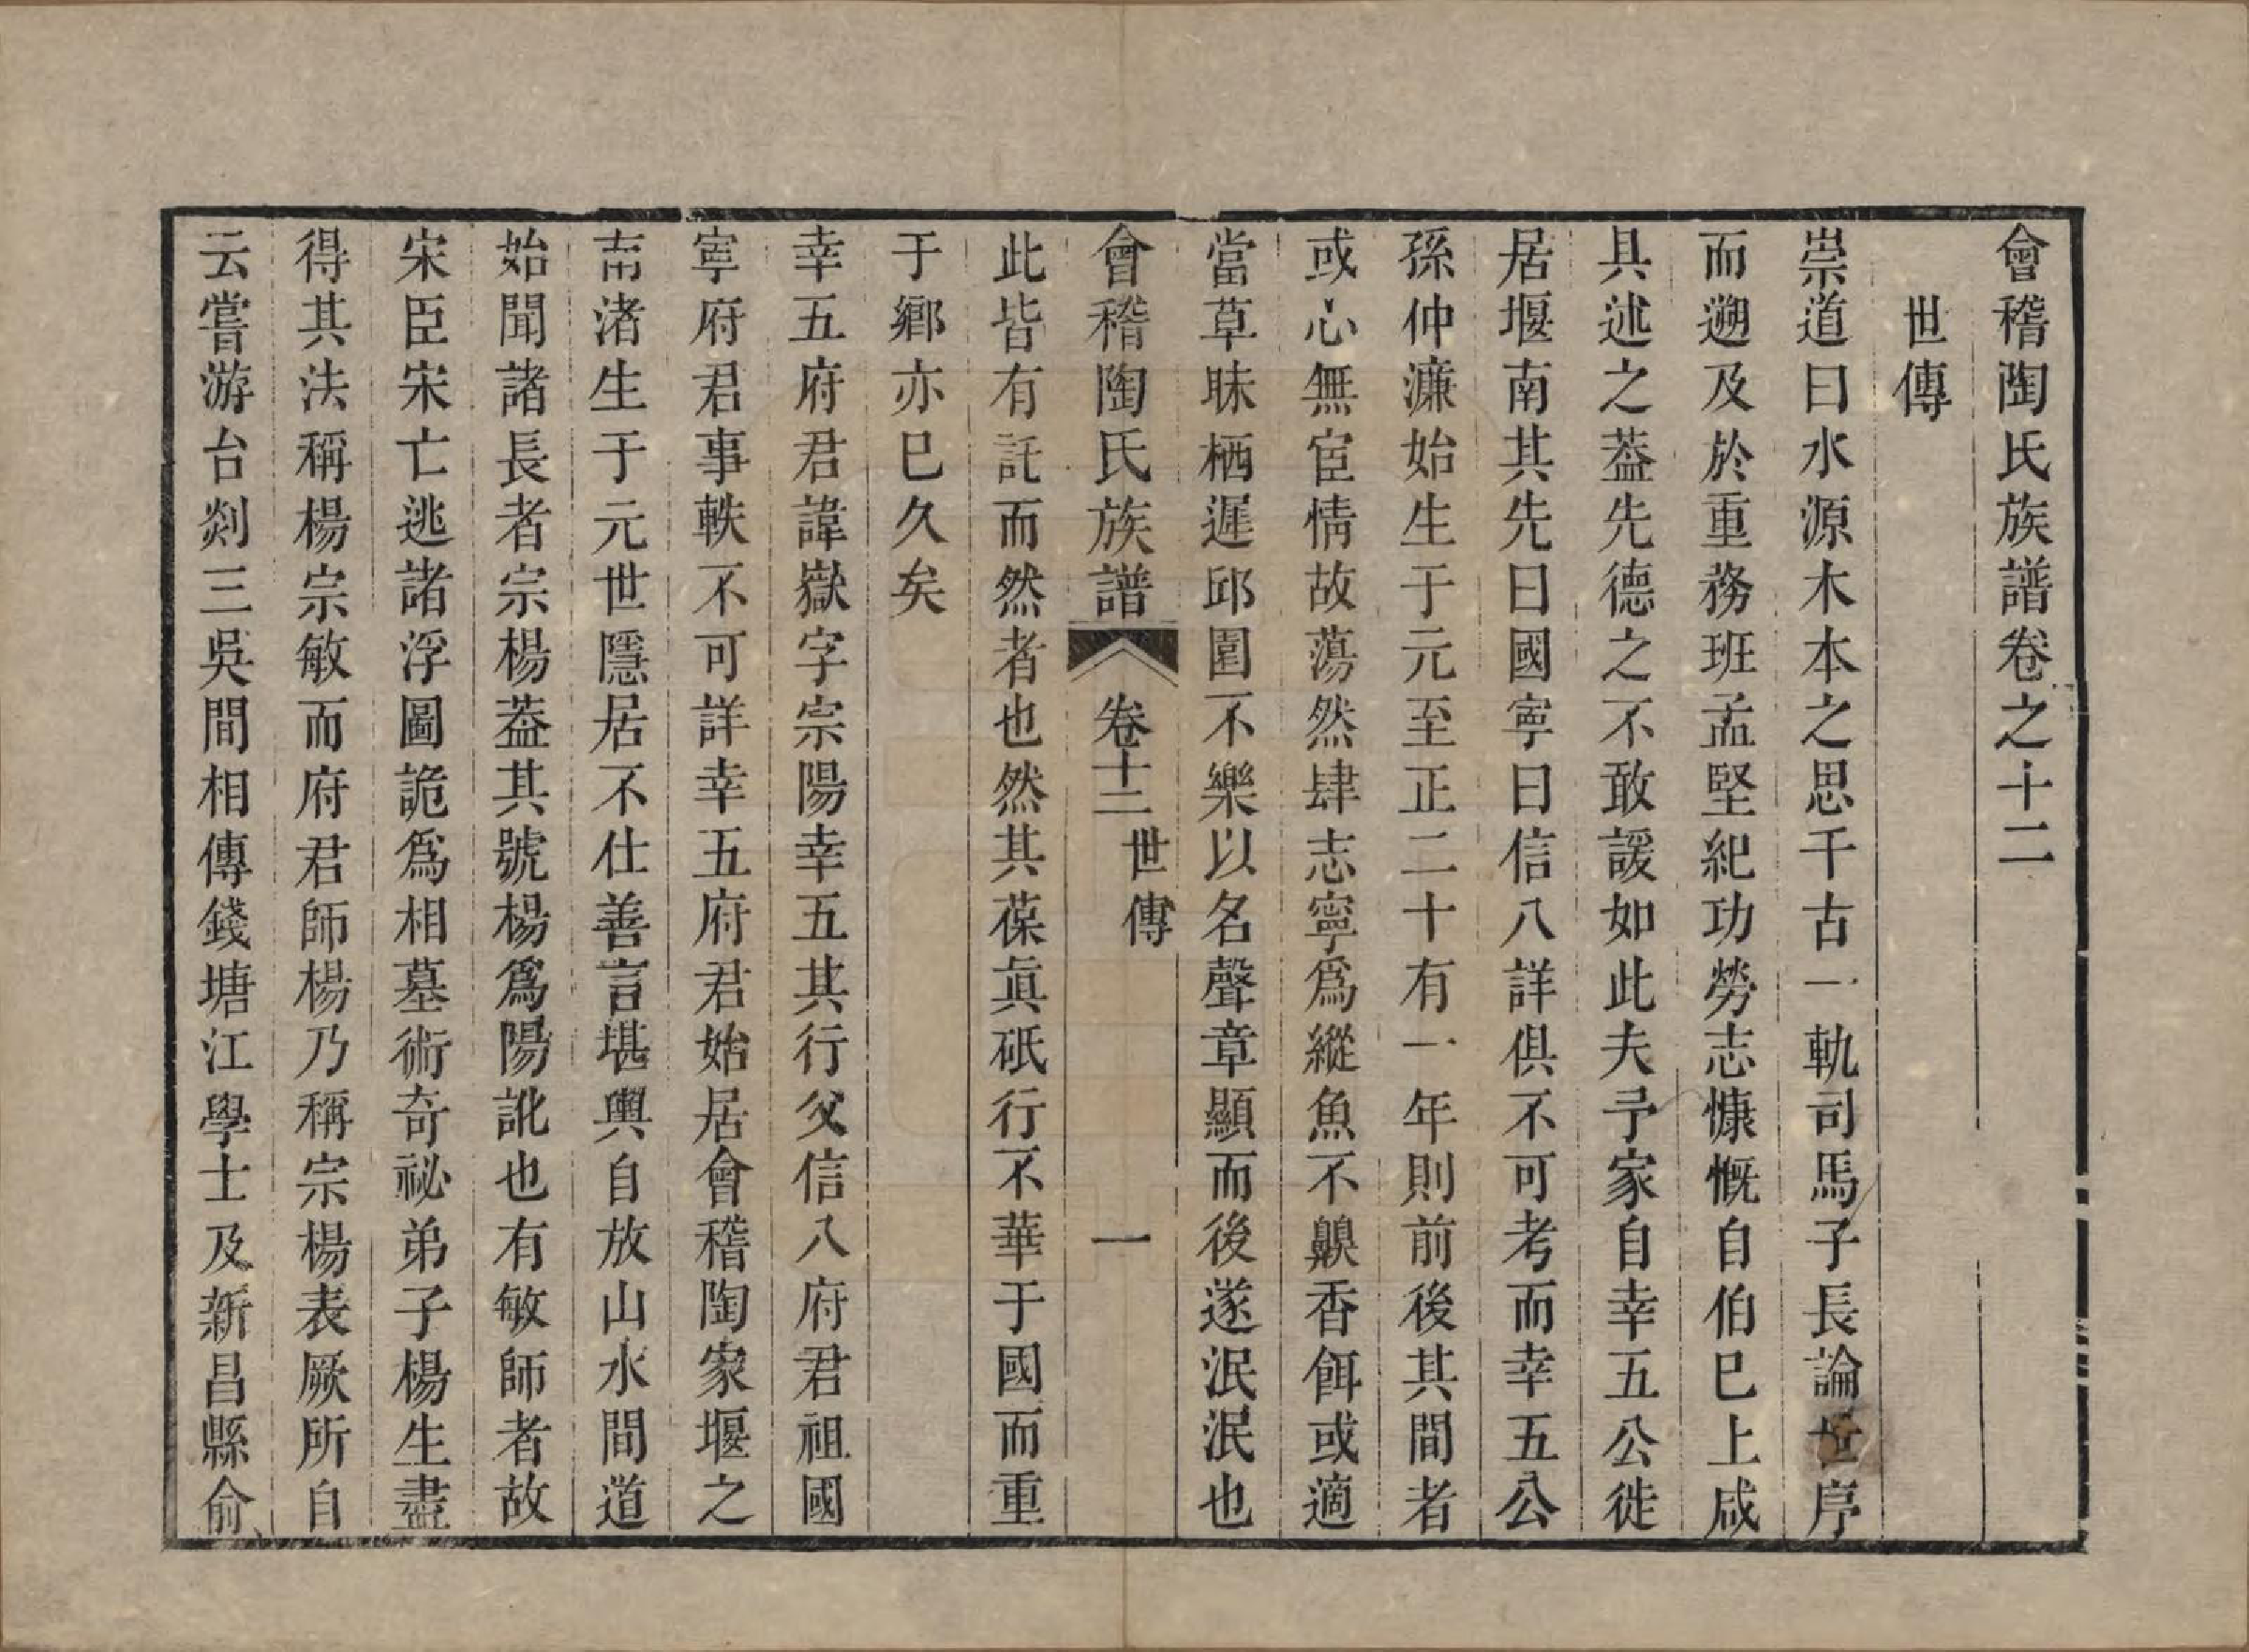 會稽陶氏族譜卷之十二
世傳
崇道曰水源木本之思千古一軌司馬子長論世序
而遡及於重務班孟堅紀功勞志慷慨自伯巳上咸
具述之葢先德之不敢諼如此夫予家自幸五公徙
居堰南其先曰國寧曰信八詳俱不可考而幸五公
孫仲濂始生于元至正二十有一年則前後其間者
或心無宦情故蕩然肆志寧爲縱魚不齅香餌或適
當草昧栖遲邱園不樂以名聲章顯而後遂泯泯也
會稽陶氏族譜 卷十二 世傳 一
此皆有託而然者也然其葆眞砥行不華于國而重
于鄉亦巳久矣
幸五府君諱嶽字宗陽幸五其行父信八府君祖國
寧府君事軼不可詳幸五府君始居會稽陶家堰之
南渚生于元世隱居不仕善言堪輿自放山水間道
始聞諸長者宗楊葢其號楊爲陽訛也有敏師者故
宋臣宋亡逃諸浮圖詭爲相墓術奇祕弟子楊生盡
得其法稱楊宗敏而府君師楊乃稱宗楊表厥所自
云嘗游台剡三吳間相傳錢塘江學士及新昌縣俞